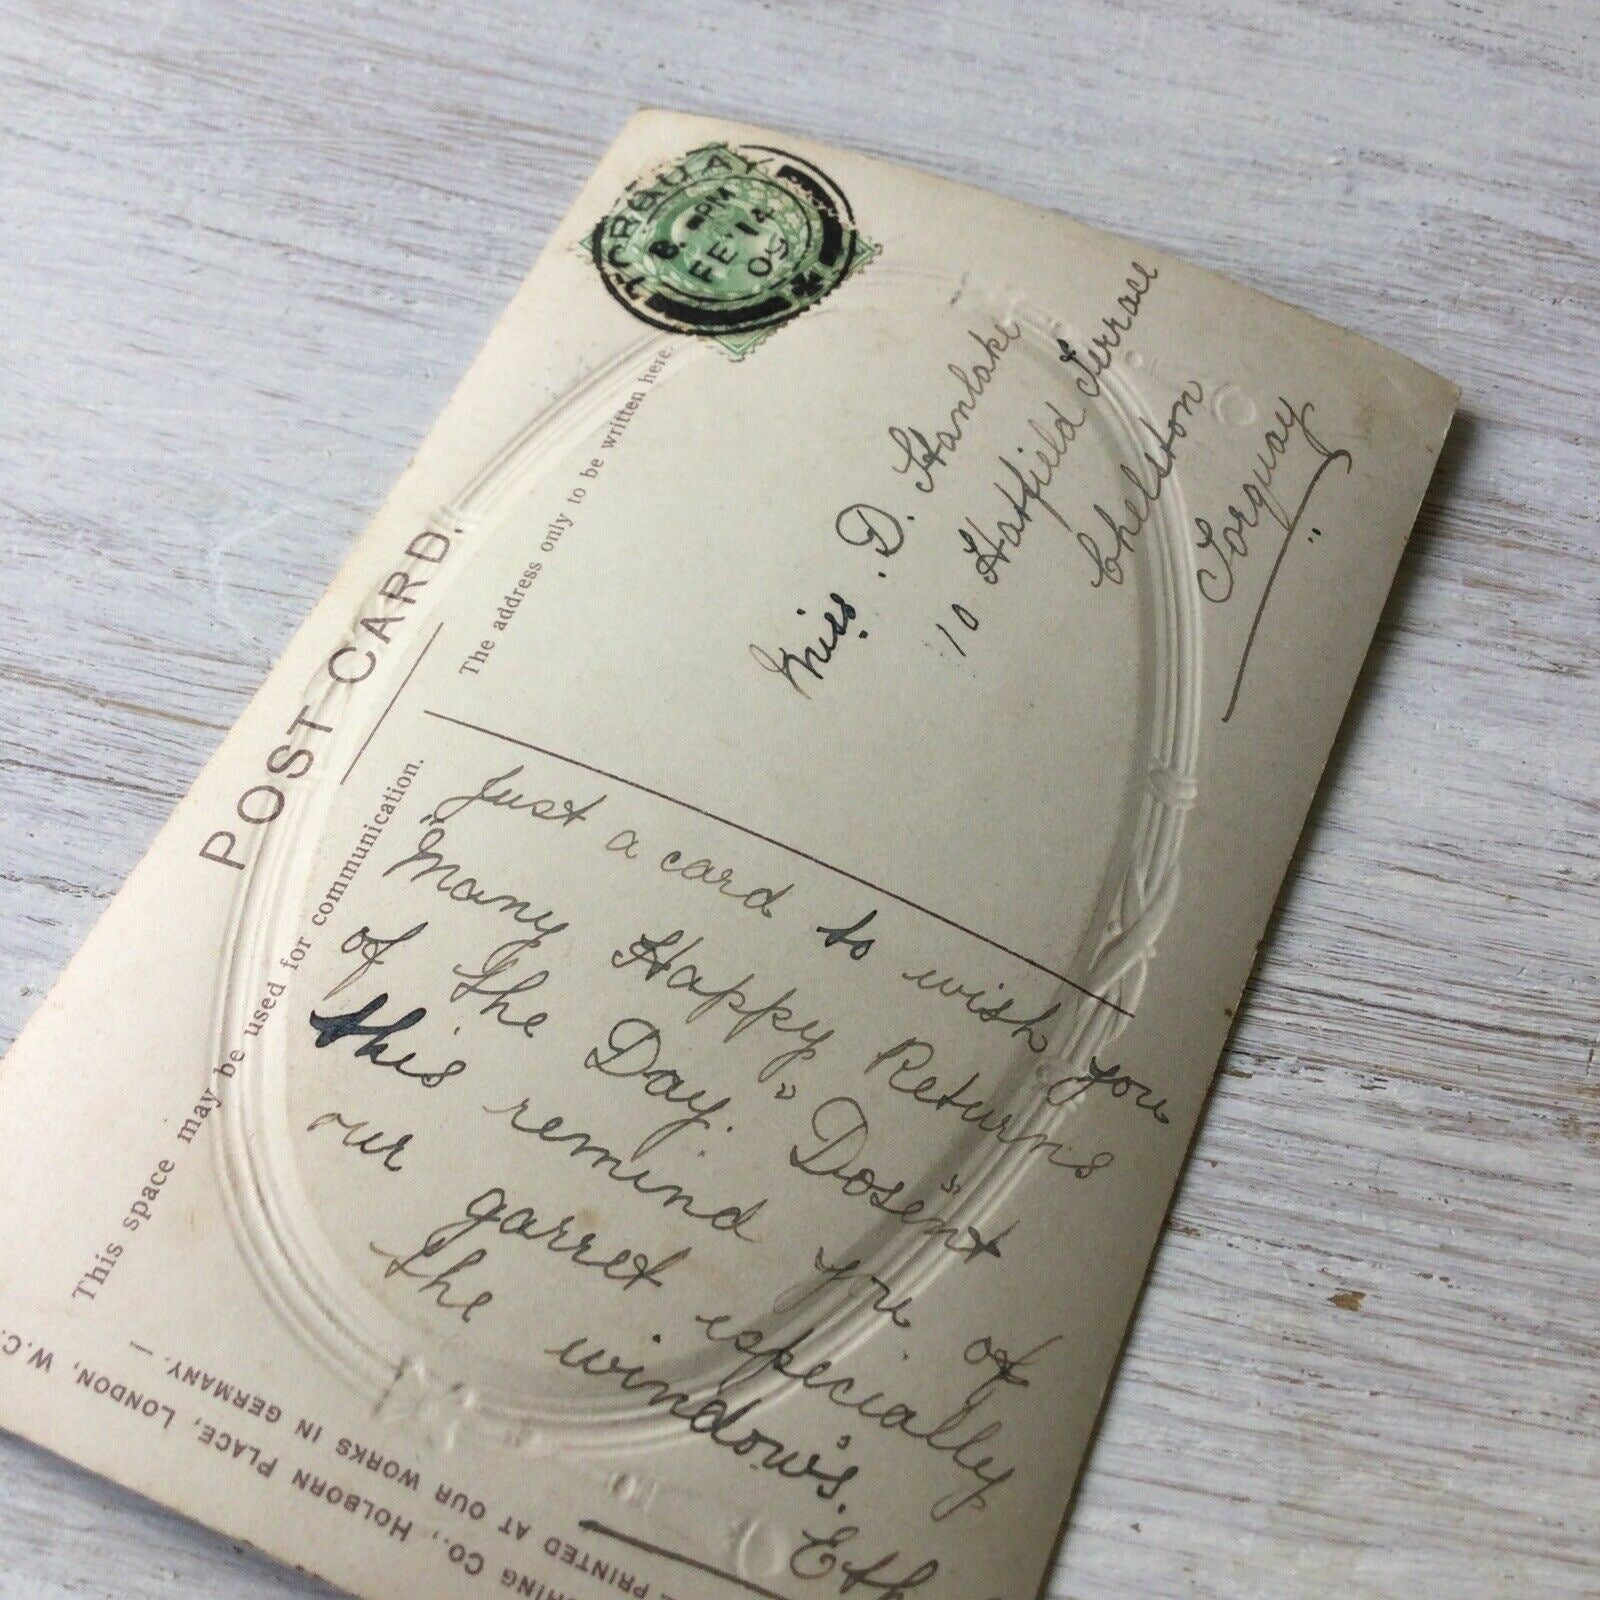 TORQUAY
8. PM
FE 14
05
POST CARD.
The address only to be written here.
This space may be used for communication.
Miss. D. Stanlake
10 Hatfield Terrace
Chelston
Torquay
Just a card to wish you
"Many Happy Returns
of the Day." Dosen't
this remind you of
our garret especially
the window's.
Eth
HING CO., HOLBORN PLACE, LONDON, W.C.
PRINTED AT OUR WORKS IN GERMANY. —